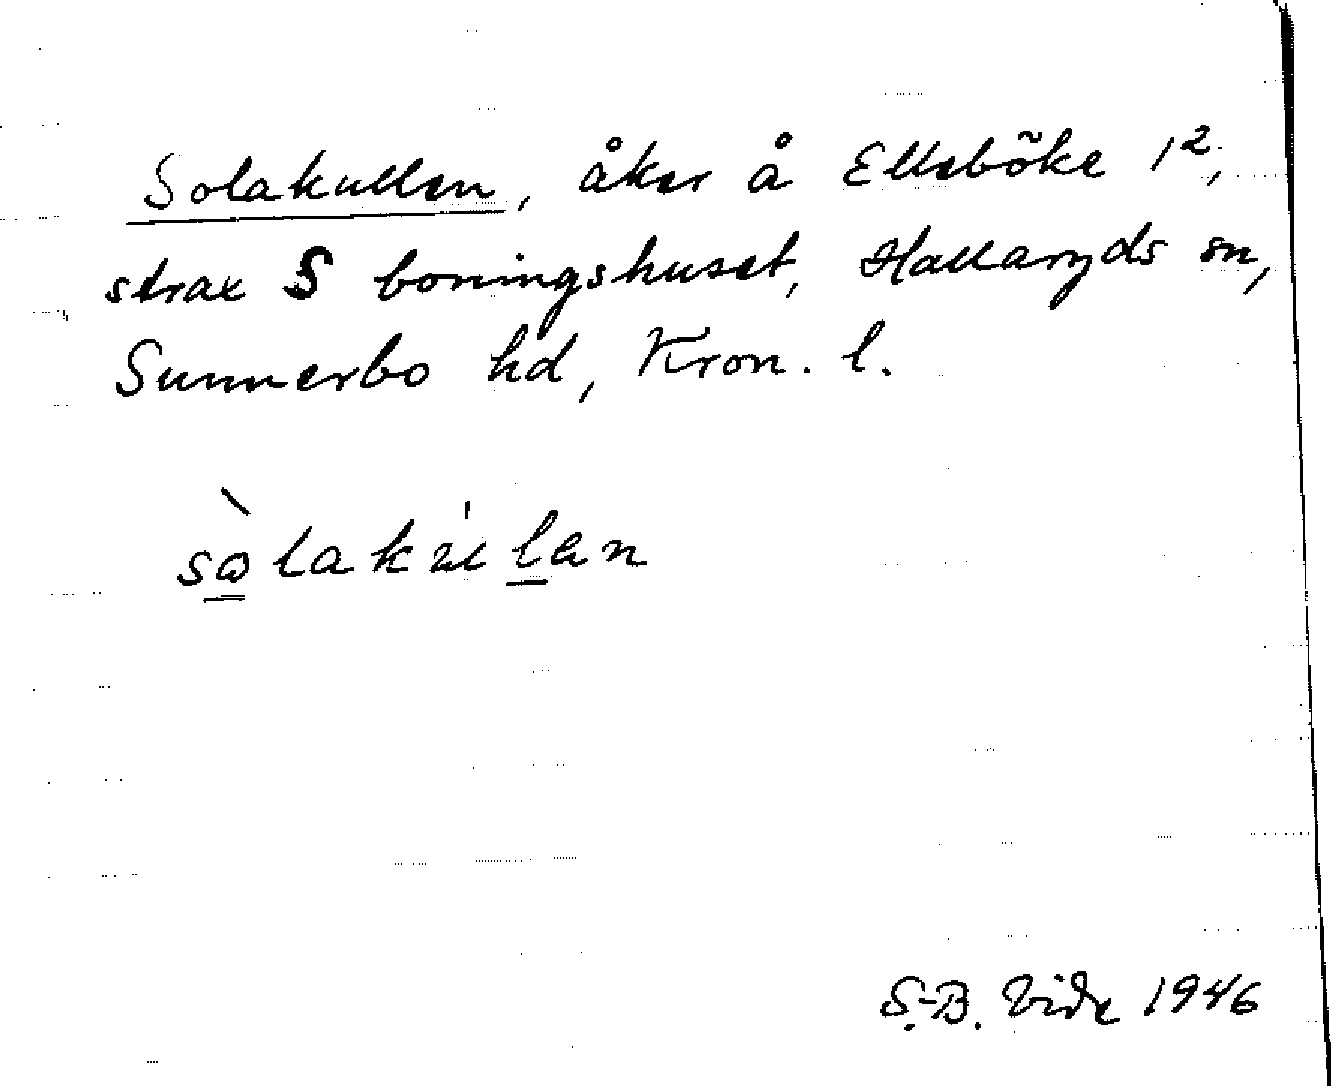 Solakullen, åker å Ellsböke 1²,
strax S boningshuset, Hallaryds sn,
Sunnerbo hd, Kron. l.
sòlakúlan
S.-B. Vide 1946